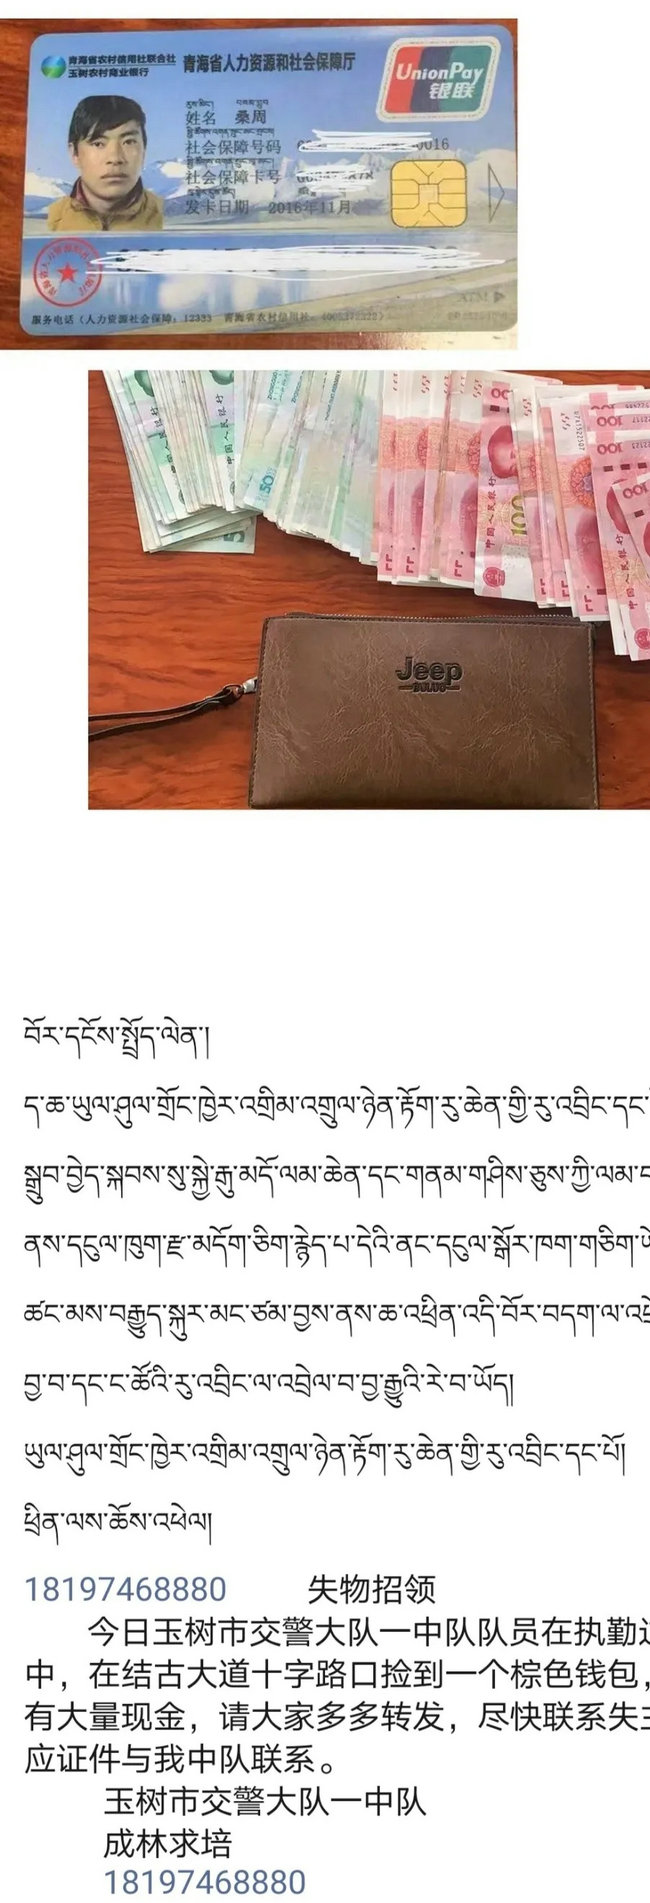 青海省农村信用社联合社
玉树农村商业银行
青海省人力资源和社会保障厅
UnionPay
银联
姓名 桑周
社会保障号码 0016
社会保障卡号
发卡日期 2016年11月
ATM
服务电话（人力资源社会保障：12333 青海省农村信用社：4006372323）
中国人民银行
50
中国人民银行
100
中国人民银行
100
Jeep
BULUO
བོར་དངོས་སྤྲོད་ལེན།
ད་ཆ་ཡུལ་ཤུལ་གྲོང་ཁྱེར་འགྲིམ་འགྲུལ་ཉེན་རྟོག་རུ་ཆེན་གྱི་རུ་འབྲིང་དང་
སྒྲུབ་བྱེད་སྐབས་སུ་སྐྱེ་རྒུ་མདོ་ལམ་ཆེན་དང་གནམ་གཤིས་ཅུས་ཀྱི་ལམ་
ནས་དངུལ་ཁུག་རྫ་མདོག་ཅིག་རྙེད་པ་དེའི་ནང་དངུལ་སྒོར་ཁག་གཅིག་
ཚང་མས་བརྒྱུད་སྐུར་མང་ཙམ་བྱས་ནས་ཆ་འཕྲིན་འདི་བོར་བདག་ལ་
བྱ་བ་དང་ང་ཚོའི་རུ་འབྲིང་ལ་འབྲེལ་བ་བྱ་རྒྱུའི་རེ་བ་ཡོད།
ཡུལ་ཤུལ་གྲོང་ཁྱེར་འགྲིམ་འགྲུལ་ཉེན་རྟོག་རུ་ཆེན་གྱི་རུ་འབྲིང་དང་པོ།
ཕྲིན་ལས་ཆོས་འཕེལ།
18197468880 失物招领
今日玉树市交警大队一中队队员在执勤
中，在结古大道十字路口捡到一个棕色钱包，
有大量现金，请大家多多转发，尽快联系失主
应证件与我中队联系。
玉树市交警大队一中队
成林求培
18197468880